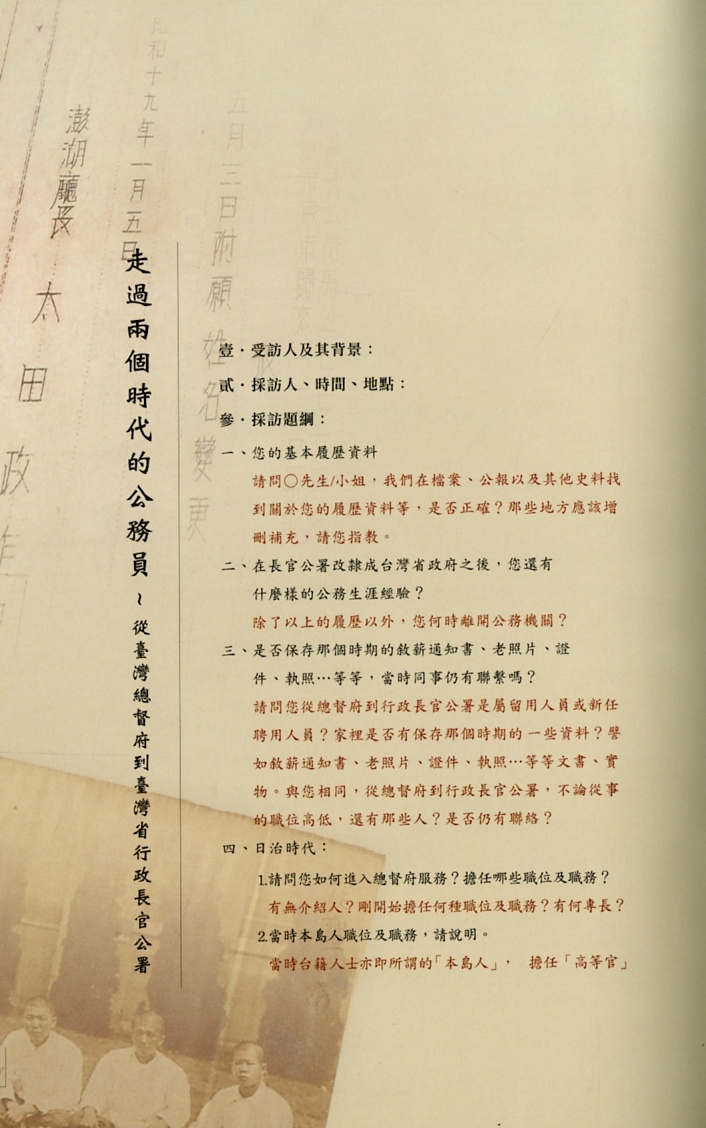 昭和十九年一月五日
澎湖廳長
太田政
五月三日附願姓名變更
走過兩個時代的公務員～從臺灣總督府到臺灣省行政長官公署
壹‧受訪人及其背景：
貳‧採訪人、時間、地點：
參‧採訪題綱：
一、您的基本履歷資料
請問○先生/小姐，我們在檔案、公報以及其他史料找
到關於您的履歷資料等，是否正確？那些地方應該增
刪補充，請您指教。
二、在長官公署改隸成台灣省政府之後，您還有
什麼樣的公務生涯經驗？
除了以上的履歷以外，您何時離開公務機關？
三、是否保存那個時期的敘薪通知書、老照片、證
件、執照…等等，當時同事仍有聯繫嗎？
請問您從總督府到行政長官公署是屬留用人員或新任
聘用人員？家裡是否有保存那個時期的一些資料？譬
如敘薪通知書、老照片、證件、執照…等等文書、實
物。與您相同，從總督府到行政長官公署，不論從事
的職位高低，還有那些人？是否仍有聯絡？
四、日治時代：
1.請問您如何進入總督府服務？擔任哪些職位及職務？
有無介紹人？剛開始擔任何種職位及職務？有何專長？
2.當時本島人職位及職務，請說明。
當時台籍人士亦即所謂的「本島人」， 擔任「高等官」